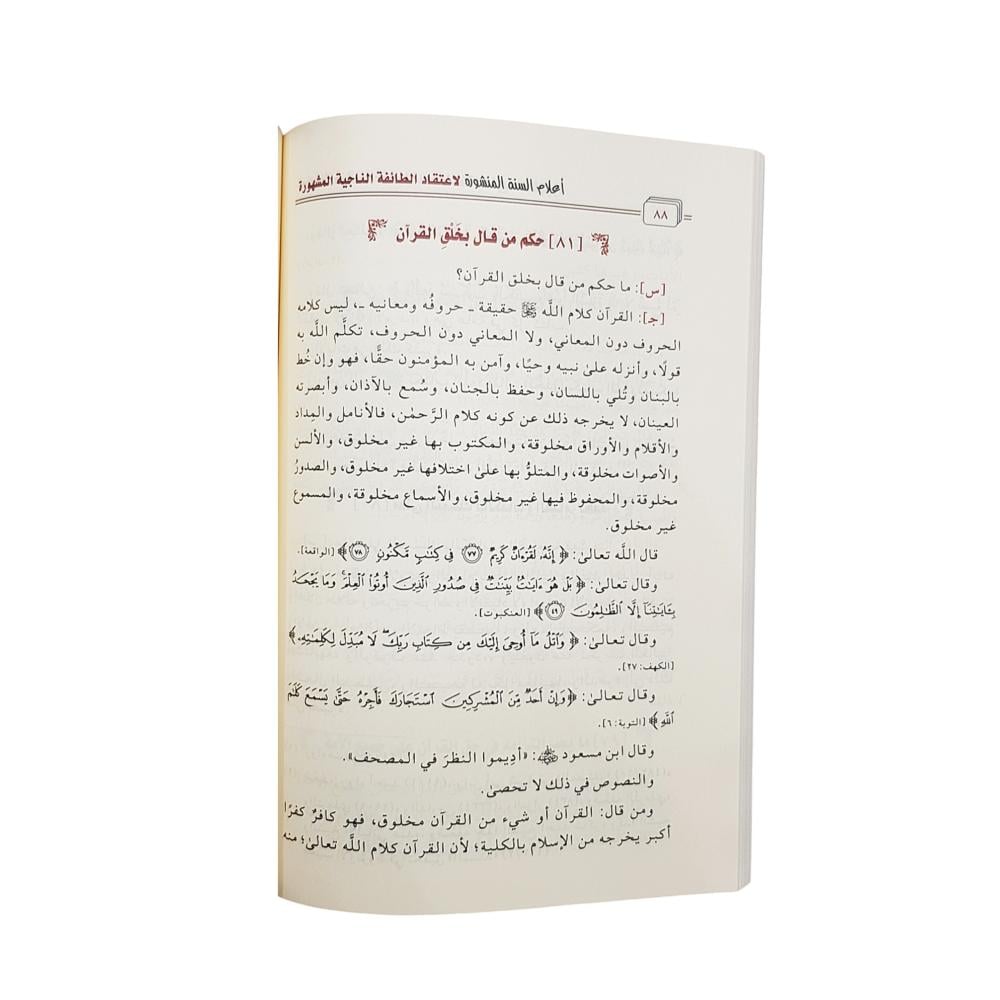 أعلام السنة المنشورة لاعتقاد الطائفة الناجية المشهورة
٨٨
[٨١] حكم من قال بخَلْقِ القرآن
[س]: ما حكم من قال بخلق القرآن؟
[جـ]: القرآن كلام اللَّه ﷻ حقيقة ـ حروفُه ومعانيه ـ، ليس كلامه
الحروف دون المعاني، ولا المعاني دون الحروف، تكلَّم اللَّه به
قولًا، وأنزله علىٰ نبيه وحيًا، وآمن به المؤمنون حقًّا، فهو وإن خُط
بالبنان وتُلي باللسان، وحفظ بالجنان، وسُمع بالآذان، وأبصرته
العينان، لا يخرجه ذلك عن كونه كلام الرَّحمٰن، فالأنامل والمِداد
والأقلام والأوراق مخلوقة، والمكتوب بها غير مخلوق، والألسن
والأصوات مخلوقة، والمتلوُّ بها علىٰ اختلافها غير مخلوق، والصدورُ
مخلوقة، والمحفوظ فيها غير مخلوق، والأسماع مخلوقة، والمسموع
غير مخلوق.
قال اللَّه تعالىٰ: ﴿ إِنَّهُۥ لَقُرْءَانٌ كَرِيمٌ ۝٧٧ فِي كِتَٰبٍ مَّكْنُونٍ ۝٧٨ ﴾ [الواقعة].
وقال تعالىٰ: ﴿ بَلْ هُوَ ءَايَٰتٌۢ بَيِّنَٰتٌ فِي صُدُورِ ٱلَّذِينَ أُوتُوا۟ ٱلْعِلْمَ ۚ وَمَا يَجْحَدُ
بِـَٔايَٰتِنَآ إِلَّا ٱلظَّٰلِمُونَ ۝٤٩ ﴾ [العنكبوت].
وقال تعالىٰ: ﴿ وَٱتْلُ مَآ أُوحِيَ إِلَيْكَ مِن كِتَابِ رَبِّكَ ۖ لَا مُبَدِّلَ لِكَلِمَٰتِهِۦ ﴾
[الكهف: ٢٧].
وقال تعالىٰ: ﴿ وَإِنْ أَحَدٌ مِّنَ ٱلْمُشْرِكِينَ ٱسْتَجَارَكَ فَأَجِرْهُ حَتَّىٰ يَسْمَعَ كَلَٰمَ
ٱللَّهِ ﴾ [التوبة: ٦].
وقال ابن مسعود رضي الله عنه: «أديموا النظرَ في المصحف».
والنصوص في ذلك لا تحصىٰ.
ومن قال: القرآن أو شيء من القرآن مخلوق، فهو كافرٌ كفرًا
أكبر يخرجه من الإسلام بالكلية؛ لأن القرآن كلام اللَّه تعالىٰ؛ منه